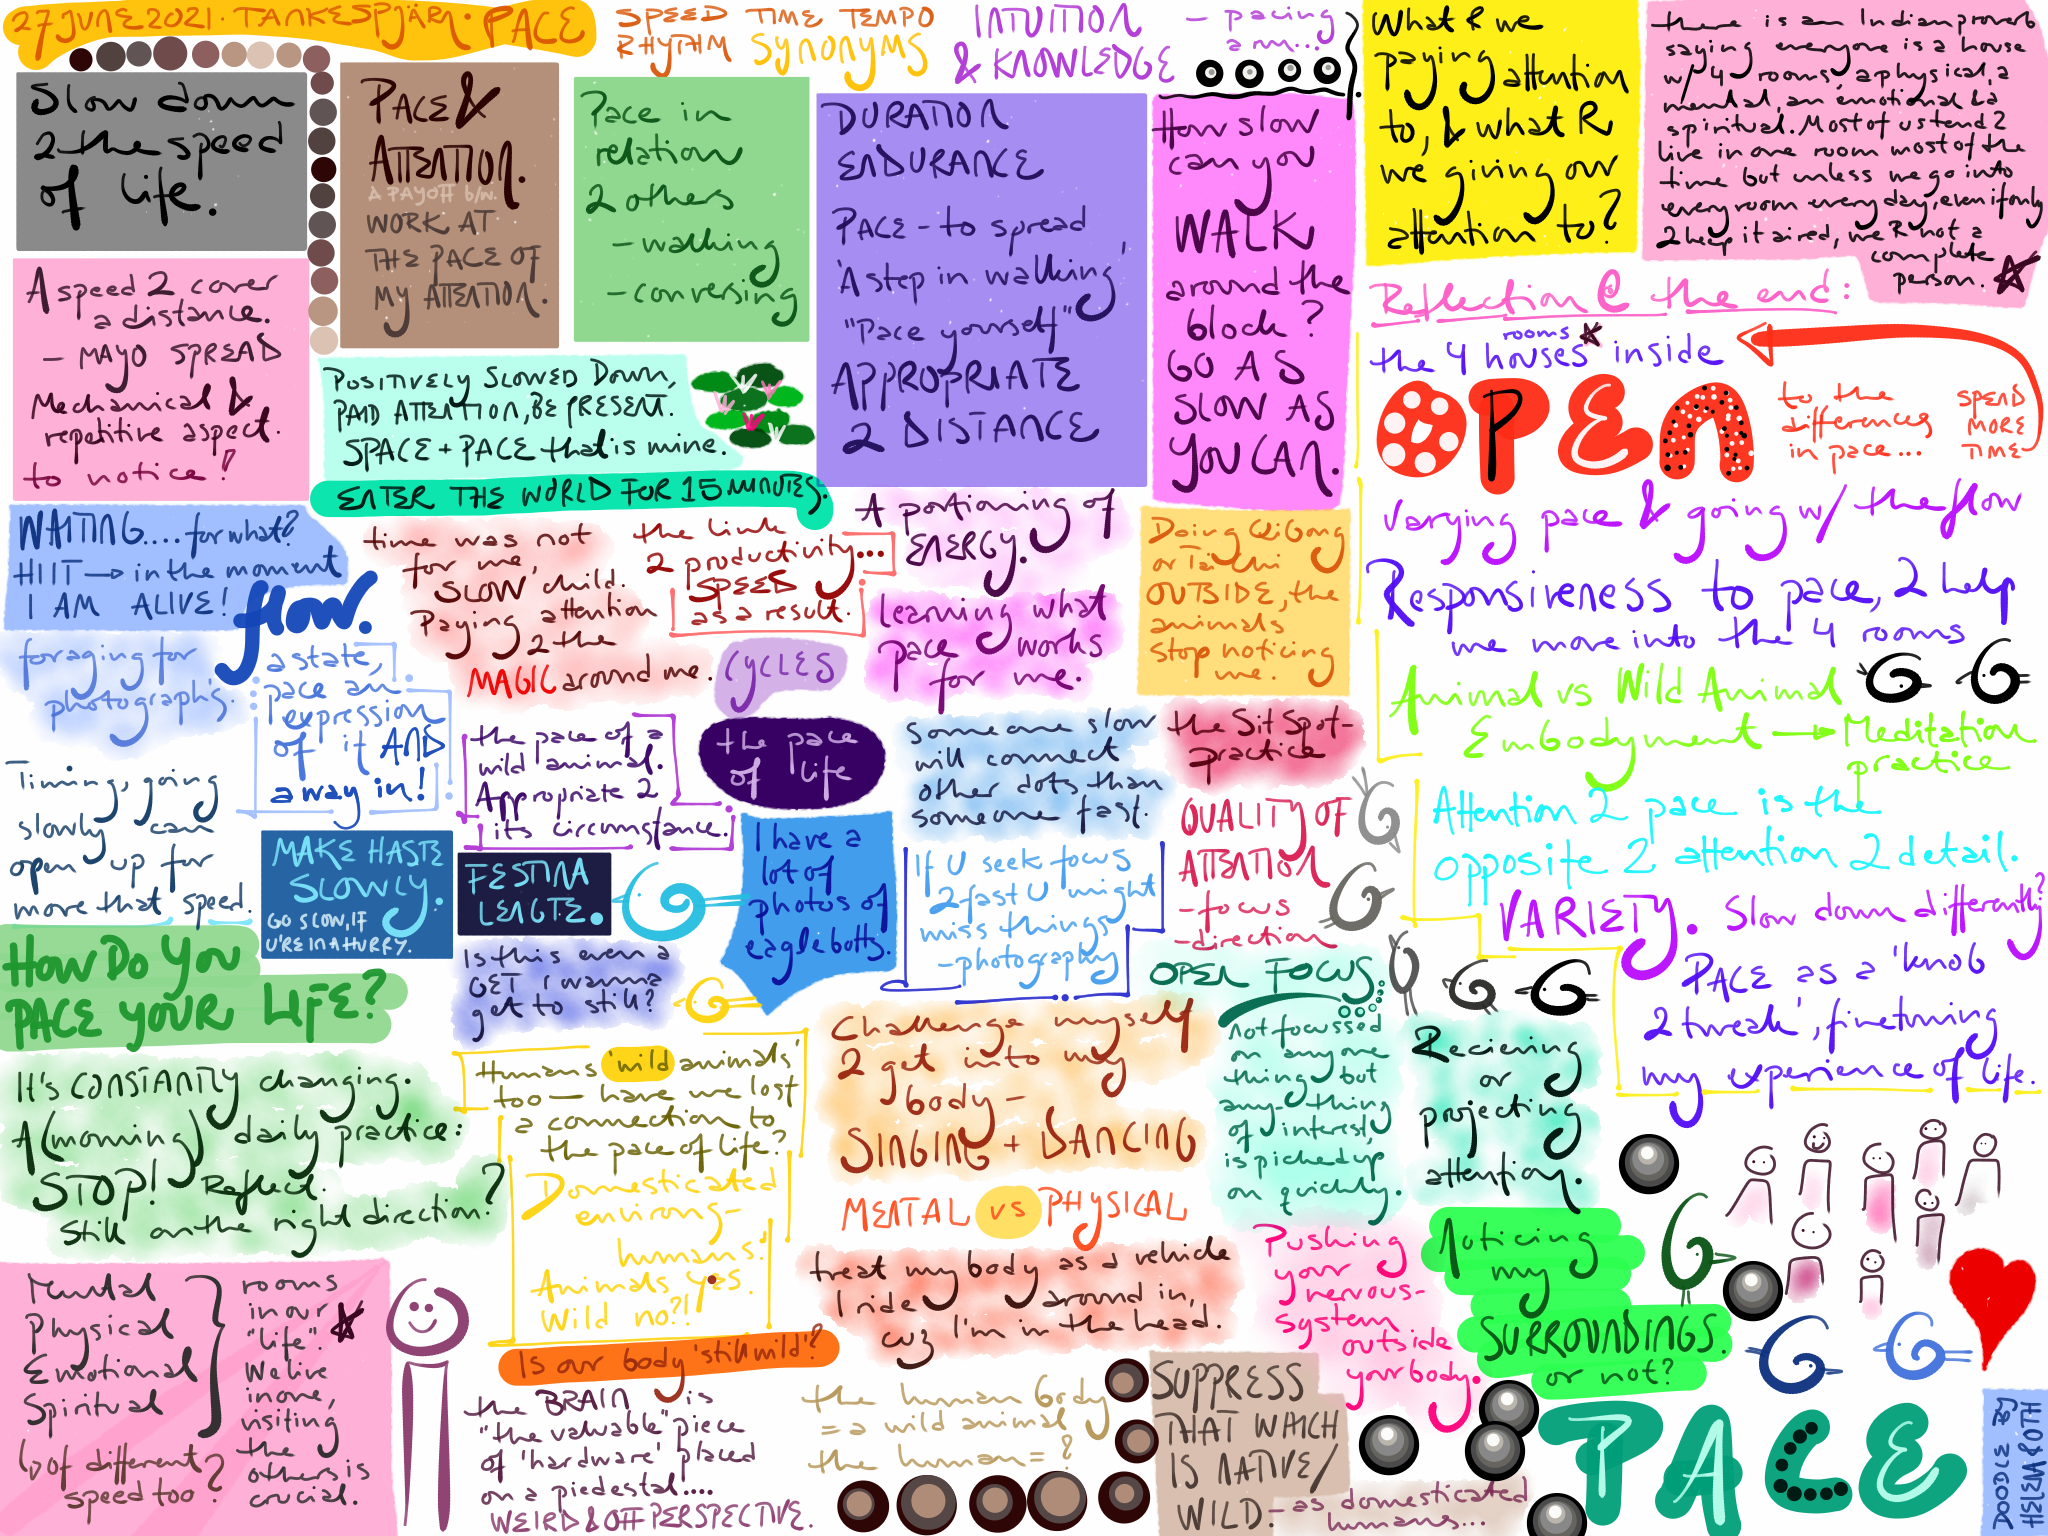 27 JUNE 2021 · TANKESPJÄRN · PACE
SPEED TIME TEMPO
RHYTHM SYNONYMS
INTUITION
& KNOWLEDGE
- pacing
arm...
Slow down
2 the speed
of life.
PACE &
ATTENTION.
A PAYOFF b/w.
WORK AT
THE PACE OF
MY ATTENTION.
Pace in
relation
2 others
- walking
- conversing
DURATION
ENDURANCE
PACE - to spread
'A step in walking'
"Pace yourself"
APPROPRIATE
2 DISTANCE
How slow
can you
WALK
around the
block?
GO AS
SLOW AS
YOU CAN.
What R we
paying attention
to, & what R
we giving our
attention to?
There is an Indian proverb
saying everyone is a house
w/ 4 rooms, a physical, a
mental, an emotional & a
spiritual. Most of us tend 2
live in one room most of the
time but unless we go into
every room every day, even if only
2 keep it aired, we R not a
complete
person.
A speed 2 cover
a distance.
- MAYO SPREAD
Mechanical &
repetitive aspect.
to notice!
POSITIVELY SLOWED DOWN,
PAID ATTENTION, BE PRESENT.
SPACE + PACE that is mine.
ENTER THE WORLD FOR 15 MINUTES.
Reflection @ the end:
rooms
the 4 houses inside
OPEN
to the
differences
in pace...
SPEND
MORE
TIME
Varying pace & going w/ the flow
Responsiveness to pace, 2 help
me move into the 4 rooms
Animal vs Wild Animal
Embodyment → Meditation
practice
Attention 2 pace is the
opposite 2 attention 2 detail.
VARIETY. Slow down differently?
PACE as a 'knob
2 tweak', finetuning
my experience of life.
WAITING.... for what?
HIIT → in the moment
I AM ALIVE!
flow.
foraging for
photographs.
a state,
pace an
expression
of it AND
a way in!
time was not
for me
'SLOW' child.
Paying attention
2 the
MAGIC around me.
the link
2 productivity...
SPEED
as a result.
A portioning of
ENERGY.
learning what
pace works
for me.
Doing QiGong
or Tai Chi
OUTSIDE, the
animals
stop noticing
me.
CYCLES
the pace
of life
the pace of a
wild animal.
Appropriate 2
its circumstance.
Someone slow
will connect
other dots than
someone fast.
the Sit Spot-
practice
QUALITY OF
ATTENTION
- focus
- direction
Timing, going
slowly can
open up for
more that speed.
MAKE HASTE
SLOWLY.
GO SLOW, IF
U'RE IN A HURRY.
FESTINA
LENGTE.
I have a
lot of
photos of
eagle butts.
If U seek focus
2 fast U might
miss things
- photography
HOW DO YOU
PACE YOUR LIFE?
Is this even a
GET I wanna
get to still?
OPEN FOCUS
not focussed
on any one
thing but
any-thing
of interest,
is picked up
on quickly.
Recieving
or
projecting
attention.
It's CONSTANTLY changing.
A (morning) daily practice:
STOP! Reflect.
Still on the right direction?
Humans 'wild animals'
too - have we lost
a connection to
the pace of life?
Domesticated
environg-
humans!
Animals yes.
Wild no?!
Is our body 'still wild'?
Challenge myself
2 get into my
body -
SINGING + DANCING
MENTAL vs PHYSICAL
treat my body as a vehicle
I ride around in,
cuz I'm in the head.
Pushing
your
nervous-
system
outside
your body.
Noticing
my
SURROUNDINGS.
or not?
Mental
Physical
Emotional
Spiritual
↳ of different
speed too?
rooms
in our
"life".
We live
in one,
visiting
the
others is
crucial.
the BRAIN is
"the valuable" piece
of 'hardware' placed
on a piedestal....
WEIRD & OFF PERSPECTIVE.
the human body
= a wild animal
the human = ?
SUPPRESS
THAT WHICH
IS NATIVE/
WILD.
- as domesticated
humans...
PACE
DOODLE BY
HELENA ROTH